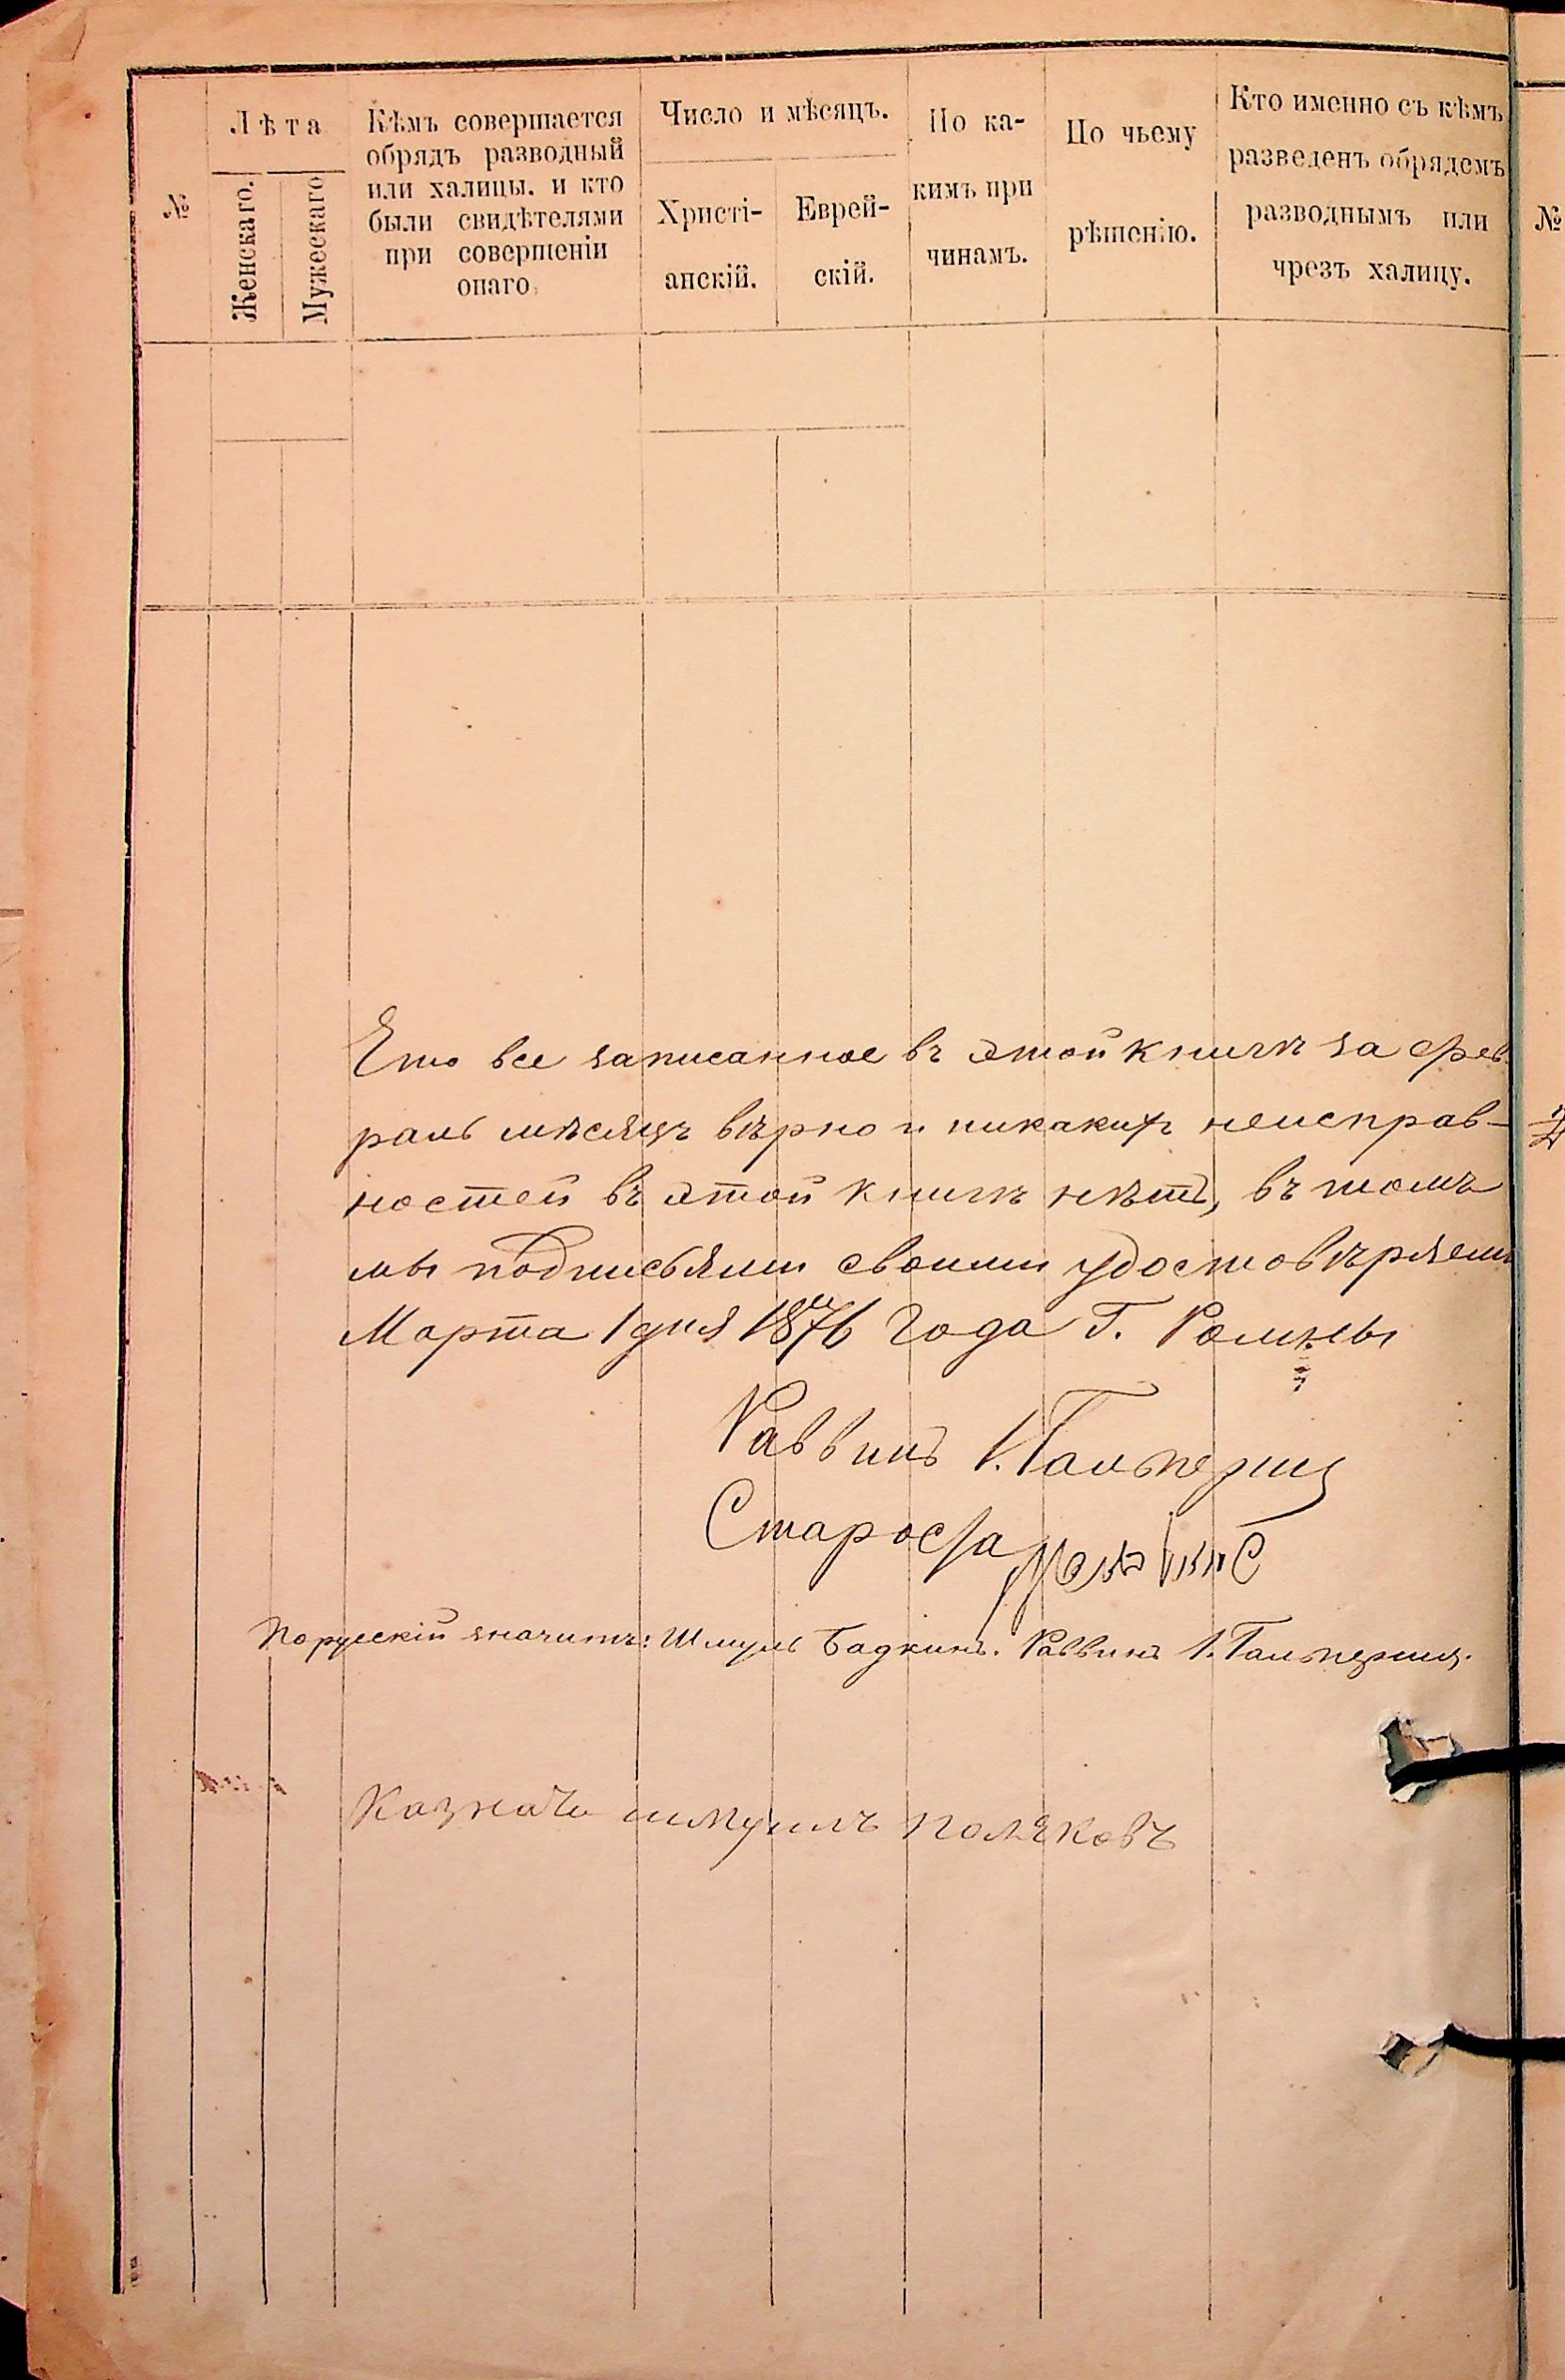 №
Лѣта
Женскаго.
Мужескаго
Кѣмъ совершается
обрядъ разводный
или халицы. и кто
были свидѣтелями
при совершеніи
онаго.
Число и мѣсяцъ.
Христі-
анскій.
Еврей-
скій.
По ка-
кимъ при
чинамъ.
По чьему
рѣшенію.
Кто именно съ кѣмъ
разведенъ обрядомъ
разводнымъ или
чрезъ халицу.
№
Что все записанное въ этой книгѣ за фев-
раль мѣсяцъ вѣрно и никакихъ неисправ-
ностей въ этой книгѣ нѣтъ, въ томъ
мы подписями своими удостовѣряемъ
Марта 1 дня 1876 года Г. Ромны
Раввинъ І. Гальперинъ
Староста
По русскій значитъ: Шмуль Бадкинъ. Раввинъ І. Гальперинъ.
Казначи шмуилъ поляковъ